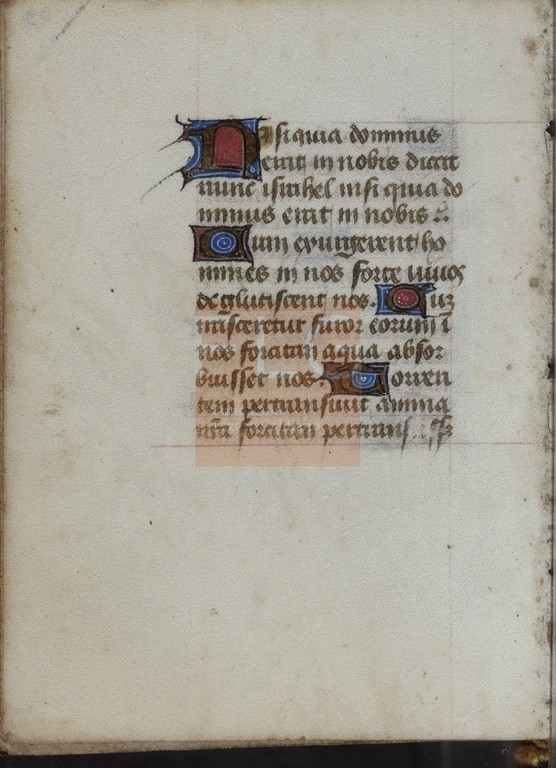 Nisi quia dominus
erat in nobis dicat
nunc israhel nisi quia do
minus erat in nobis :.
Cum exurgerent ho
mines in nos forte uiuos
deglutissent nos. Cuz
irasceretur furor eorum ī
nos forsitan aqua absor
buisset nos. Torren
tem pertransiuit anima
nr̄a forsitan pertransisset